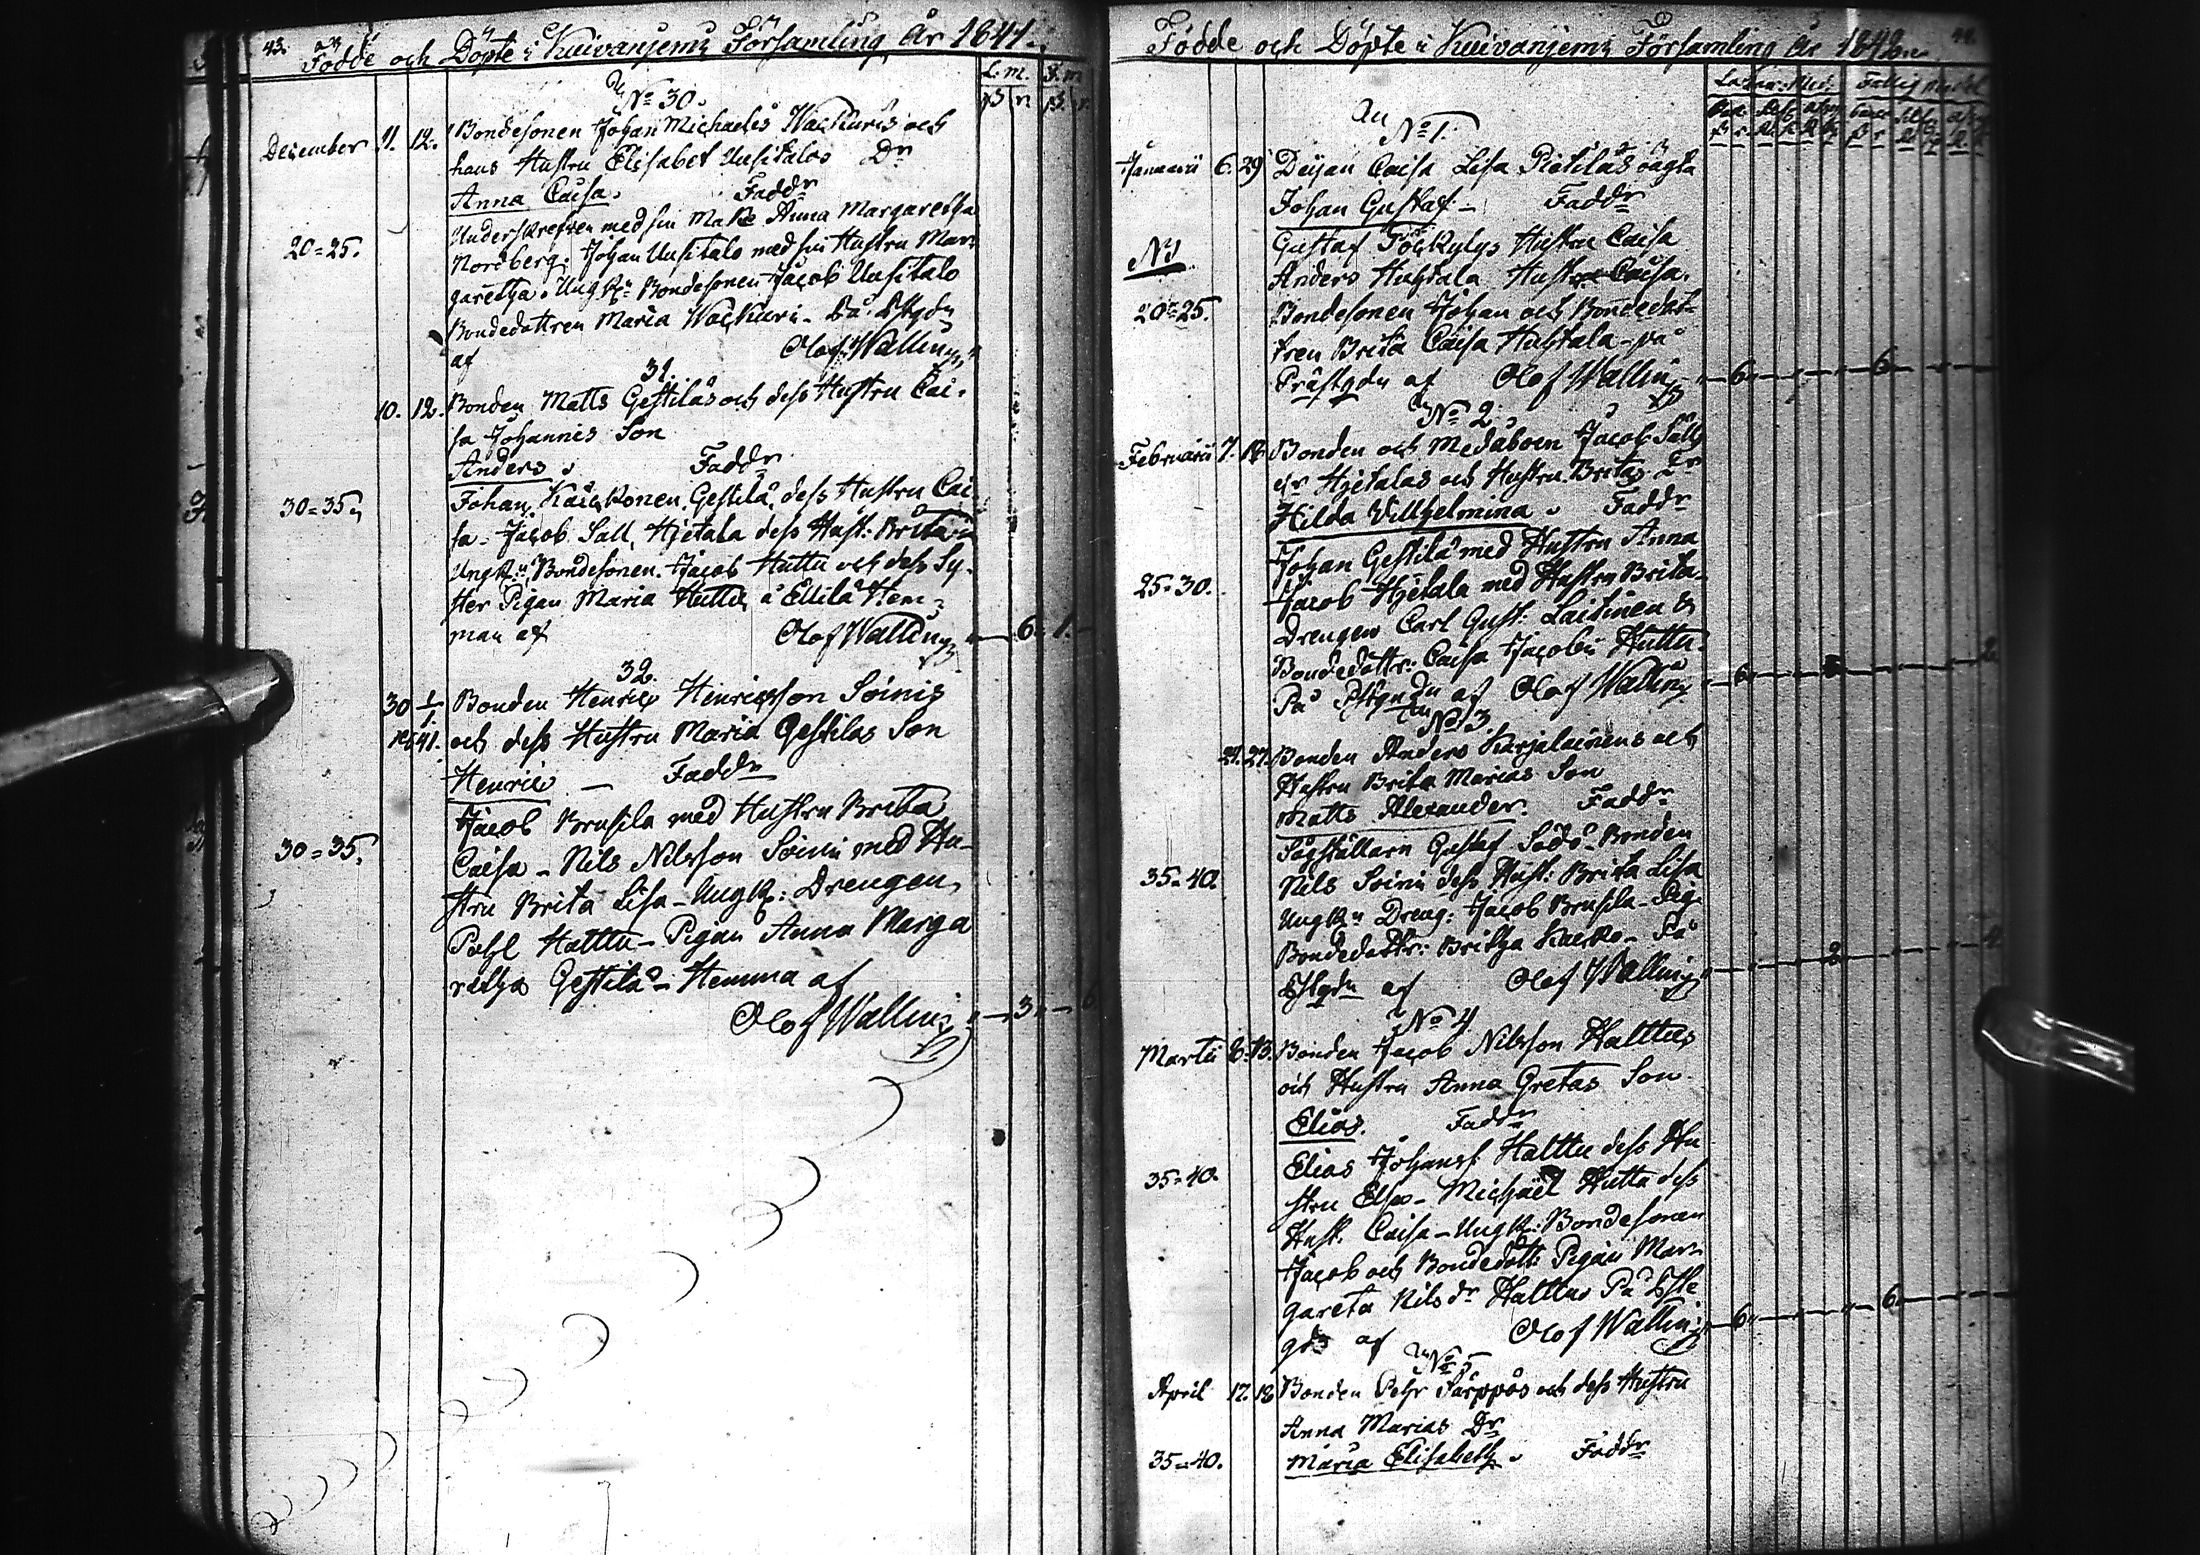 43.
Födde och Döpte i Kuivaniemi Församling År 1841.
L. m. F. m.
No 30.
December 11. 12. Bondesonen Johan Michaelis Wackuris och
hans Hustru Elisabet Uusitalos Dr
Anna Caisa. Faddr
Underskrefven med sin Maka Anna Margaretha
20=25. Nordberg. Johan Uusitalo med sin Hustru Mar-
garetha. Ungk: Bondesonen Jacob Uusitalo
Bondedottren Maria Wackuri
af Olof Wallin
31.
10. 12. Bonden Matts Gestiläs och dess Hustru Cai-
sa Johannis Son
Anders. Faddr
30=35. Johan Gestilä, dess Hustru Cai-
sa. Jacob Säll, Hjetala dess Hust: Brita
Ungk: Bondesonen Jacob Huttu och dess Sy-
ster Pigan Maria Huttu å Ellilä Hem-
man af Olof Wallin 6 1
32.
30 1/1 Bonden Henric Henricsson Soinis
1841. och dess Hustru Maria Gestiläs Son
Henric — Faddr
Jacob Brusila med Hustru Brita
30=35. Caisa - Nils Nilsson Soini med Hu-
stru Brita Lisa - Ungk: Drengen
Pehl Halttu - Pigan Anna Marga
retha Gestilä - Hemma af
Olof Wallin 3 6
Födde och Döpte i Kuivaniemi Församling År 1842.
44.
No 1.
Januarii 6. 29 Deijan Caisa Lisa Pietiläs oägta
Johan Gustaf - Faddr
Gustaf Hustru Caisa
Anders Huhtala Hustru Caisa.
20=25. Bondesonen Johan och Bondedot-
tren Brita Caisa Huhtala - på
Prästgdn af Olof Wallin 6 6
No 2
Februarii 7. 13 Bonden och Medåboen Jacob Säll
Hjetalas och Hustru Britas Dr
Hilda Vilhelmina. Faddr
Johan Gestilä med Hustru Anna
25=30. Jacob Hjetala med Hustru Brita
Drengen Carl Gust: Laitinen &
Bondedottr: Caisa Jacobi Huttu.
På Pstgdn af Olof Wallin 6
No 3.
24. 27. Bonden Anders Karjalainens och
Hustru Brita Marias Son
Matts Alexander. Faddr
Sågställarn Gustaf Södö - Bonden
35=40. Nils Soini dess Hust: Brita Lisa
Ungk: Dreng: Jacob Brusila - Pig.
Bondedottr: Britha - På
Pstgdn af Olof Wallin 2 4
No 4.
Martii 6. 13. Bonden Jacob Nilsson Halttus
och Hustru Anna Gretas Son
Elias. Faddr
Elias Johanss. Halttu dess Hu
35=40. stru Elsa - Michaël Hutta dess
Hust. Caisa - Ungk: Bondesonen
Jacob och Bondedott: Pigan Mar-
gareta Nilsdr Halttus På
af Olof Wallin 6 6
No 5
April 17. 18 Bonden Pehr Särppös och dess Hustru
Anna Marias Dr
35=40. Maria Elisabeth. Faddr